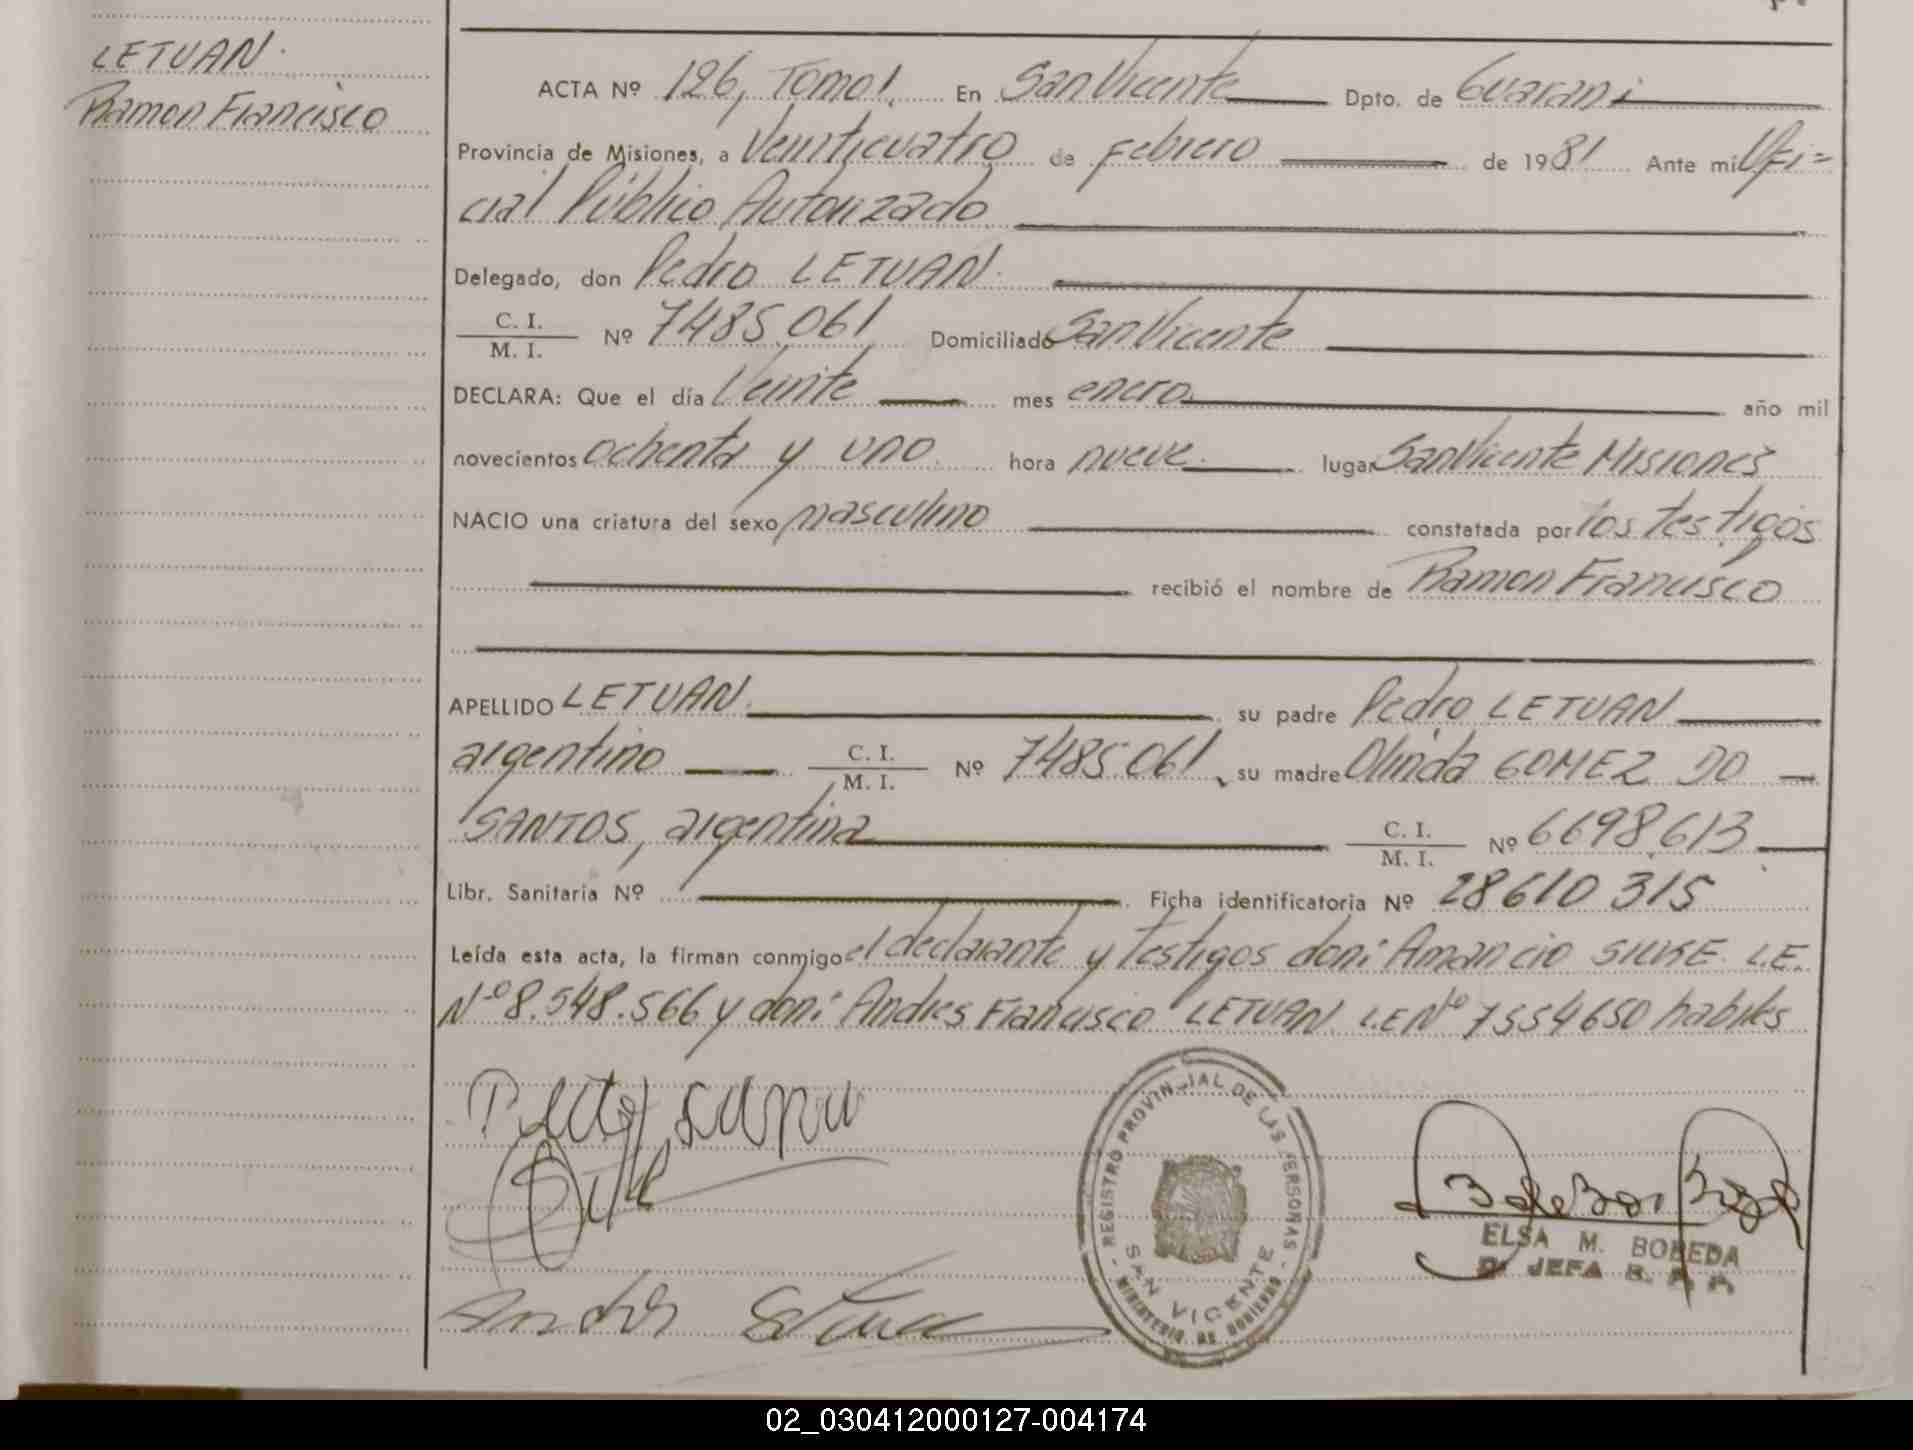 LETUAN.
Ramon Francisco
ACTA Nº 126, Tomo 1. En San Vicente Dpto. de Guarani
Provincia de Misiones, a Veinticuatro de febrero de 1981 Ante mi Ofi=
cial Público Autorizado
Delegado, don Pedro LETUAN.
C. I.
M. I.
Nº 7485.061 Domiciliado San Vicente
DECLARA: Que el día Veinte mes enero año mil
novecientos ochenta y uno hora nueve. lugar San Vicente Misiones
NACIO una criatura del sexo masculino constatada por los testigos
recibió el nombre de Ramon Francisco
APELLIDO LETUAN su padre Pedro LETUAN
argentino C. I. M. I. Nº 7485.061, su madre Olinda GOMEZ DO
SANTOS, argentina C. I. M. I. Nº 6698.613
Libr. Sanitaria Nº Ficha identificatoria Nº 28610315
Leída esta acta, la firman conmigo el declarante y testigos don: Amancio L.E.
Nº 8.548.566 y don: Andres Francisco LETUAN L.E Nº 7554650 habiles
REGISTRO PROVINCIAL DE LAS PERSONAS
SAN VICENTE
MINISTERIO DE GOBIERNO
ELSA M. BOBEDA
JEFA
02_030412000127-004174